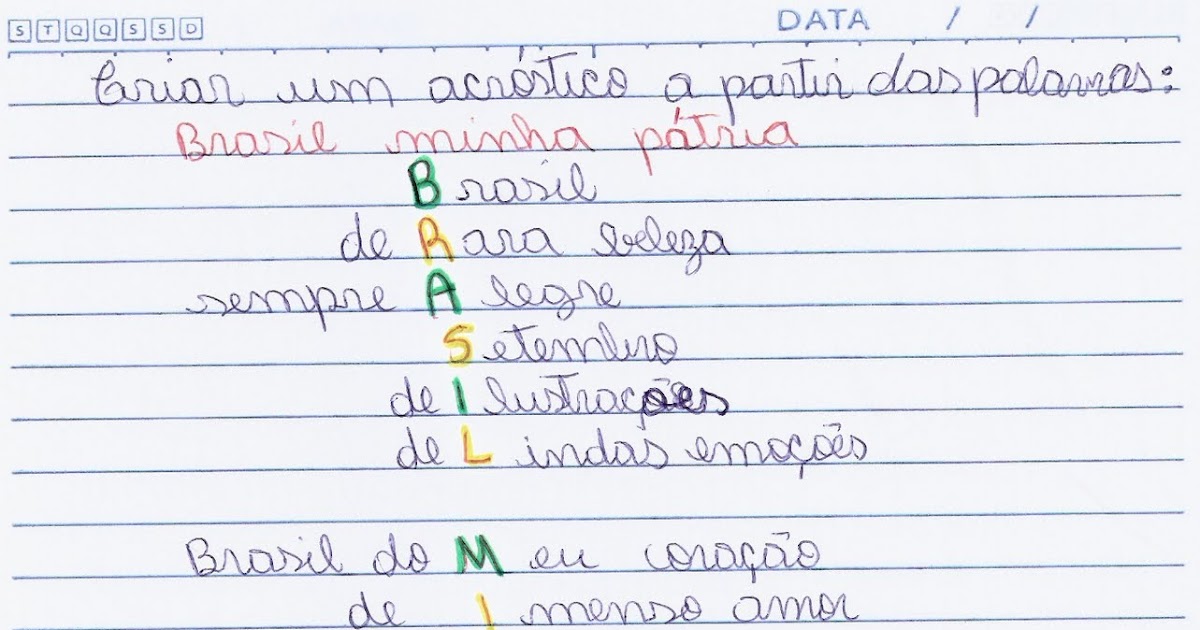 S T Q Q S S D DATA / /
Criar um acróstico a partir das palavras:
Brasil minha pátria
Brasil
de Rara beleza
sempre Alegre
Setembro
de Ilustrações
de Lindas emoções
Brasil do Meu coração
de Imenso amor